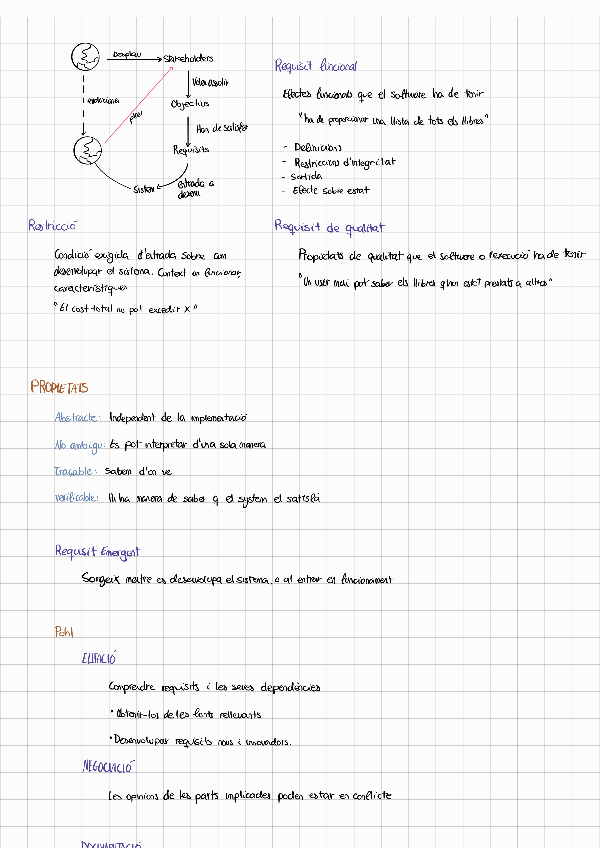 Desplau
Stakeholders
Volen assolir
evoluciona
Objectius
Han de satisfer
Requisits
Sistem
entrada a
Requisit funcional
Efectes funcionals que el software ha de tenir
"ha de proporcionar una llista de tots els llibres"
- Definicions
- Restriccions d'integritat
- Sortida
- Efecte sobre estat
Restricció
Condició exigida d'entrada sobre com
desenvolupar el sistema. Context on funcionar,
característiques
"El cost total no pot excedir X"
Requisit de qualitat
Propietats de qualitat que el software o l'execució ha de tenir
"Un user mai pot saber els llibres q han estat prestats a altres"
PROPIETATS
Abstracte: Independent de la implementació
No ambigu: Es pot interpretar d'una sola manera
Traçable: Sabem d'on ve
Verificable: Hi ha manera de saber q el system el satisfà
Requisit Emergent
Sorgeix mentre es desenvolupa el sistema, o al entrar en funcionament
Pohl
ELICITACIÓ
Comprendre requisits i les seves dependències
• Obtenir-los de les fonts rellevants
• Desenvolupar requisits nous i innovadors.
NEGOCIACIÓ
Les opinions de les parts implicades poden estar en conflicte